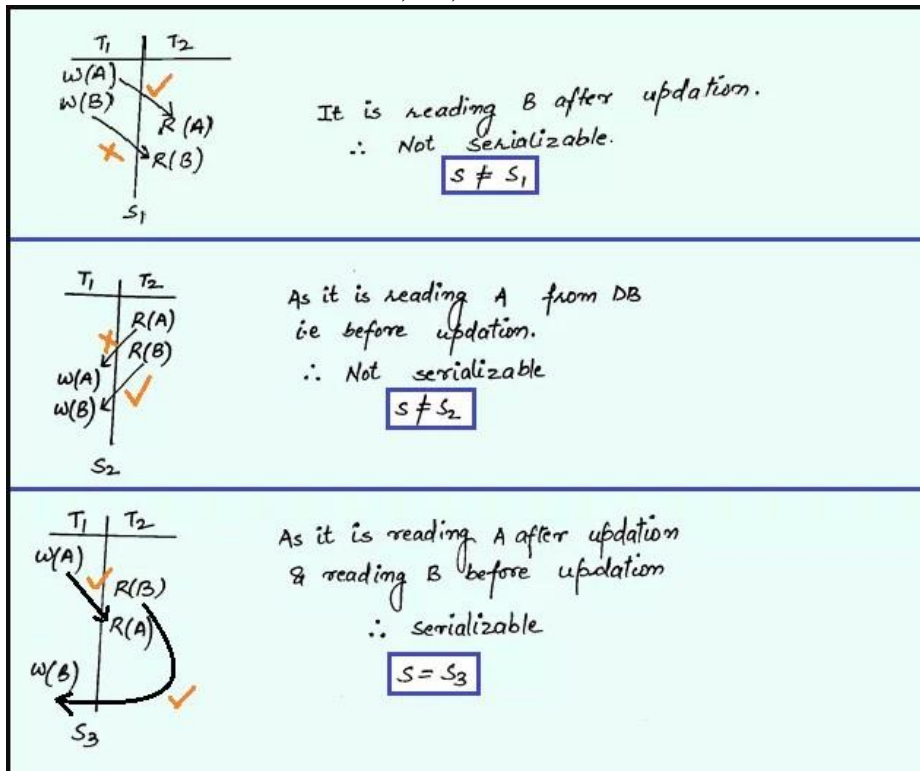 T1 T2
W(A)
W(B)
R(A)
R(B)
S1
It is reading B after updation.
∴ Not serializable.
S ≠ S1
T1 T2
R(A)
R(B)
W(A)
W(B)
S2
As it is reading A from DB
i.e before updation.
∴ Not serializable
S ≠ S2
T1 T2
W(A)
R(B)
R(A)
W(B)
S3
As it is reading A after updation
& reading B before updation
∴ serializable
S = S3